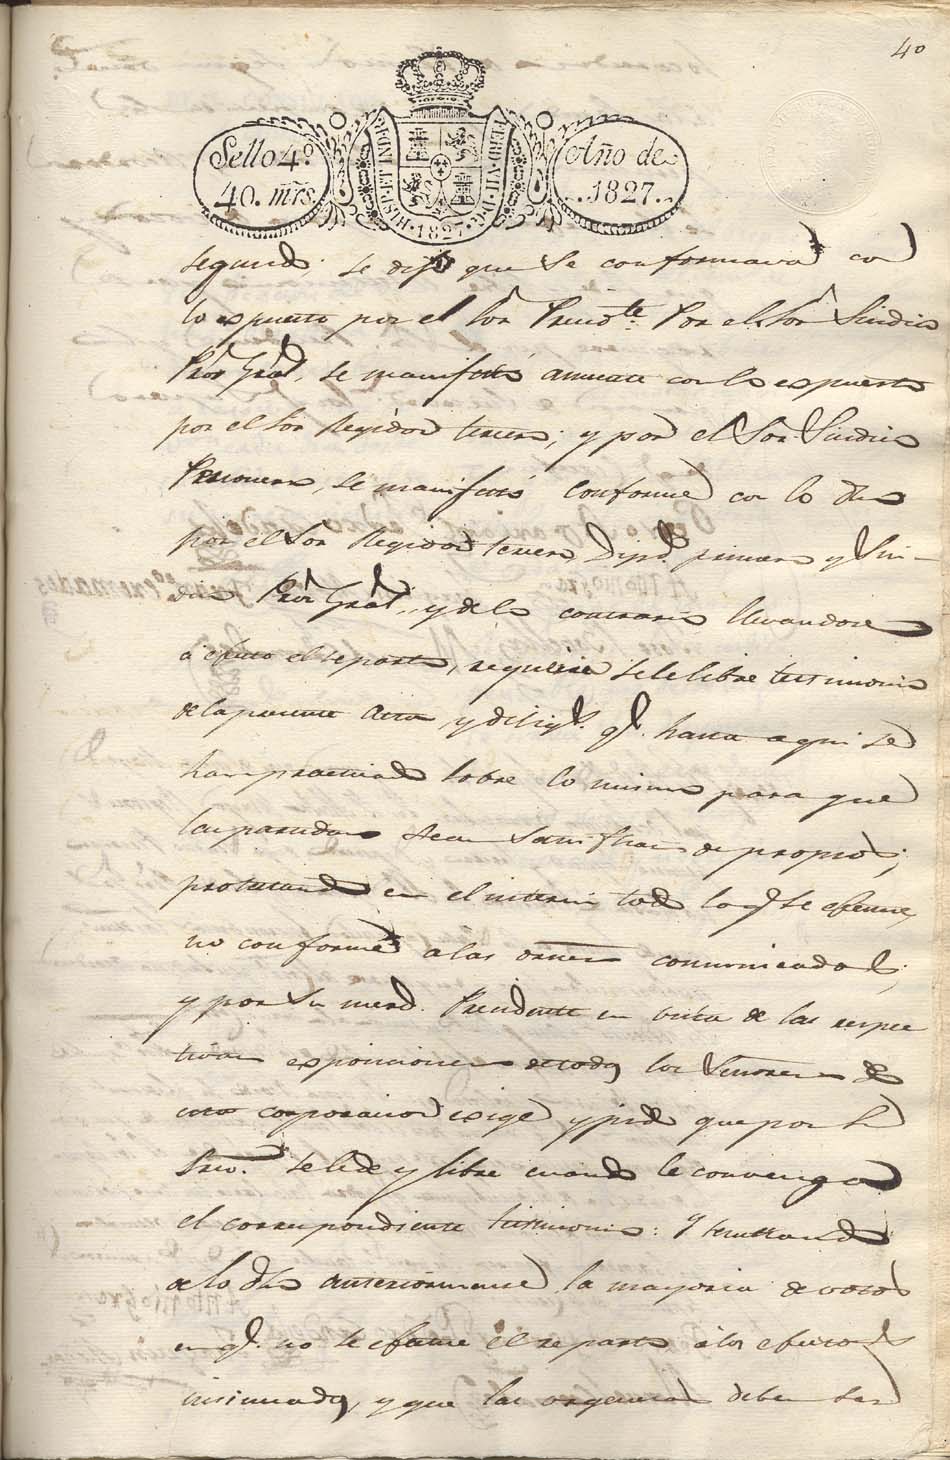 40
Sello 4.º
40. mrs.
HISP. ET IND. R.
FERD. VII. D. G.
1827
Año de
1827.
segundo; se dijo que se conformava con
lo espuesto por el Sor Presidte. Por el Sor Sindico
Pror Gral, se manifestó anuente con lo espuesto
por el Sor Regidor tercero; y por el Sor Sindico
Personero, se manifestó conforme con lo dho
por el Sor Regidor tercero, Dipdo. primero y Sin-
dico Pror Gral., y de lo contrario llevandose
á efecto el reparto, requiere se le libre testimonio
de la presente Acta y dilig.s q.e hasta aqui se
han practicado sobre lo mismo para que
las partidas sean de propios;
protestando en el interin todo lo q.e se efectue,
no conforme a las ornes comunicadas;
y por su merd. Presidente en vista de las respec
tivas exposiciones de todos los Señores de
esta corporacion exige y pide que por el
Srio. se le dé y libre cuando le convenga
el correspondiente testimonio: y resultando
de lo dho anteriormente la mayoria de votos
en q.e no se efectue el reparto á los efectos
insinuados, y que las urgencias deben ser